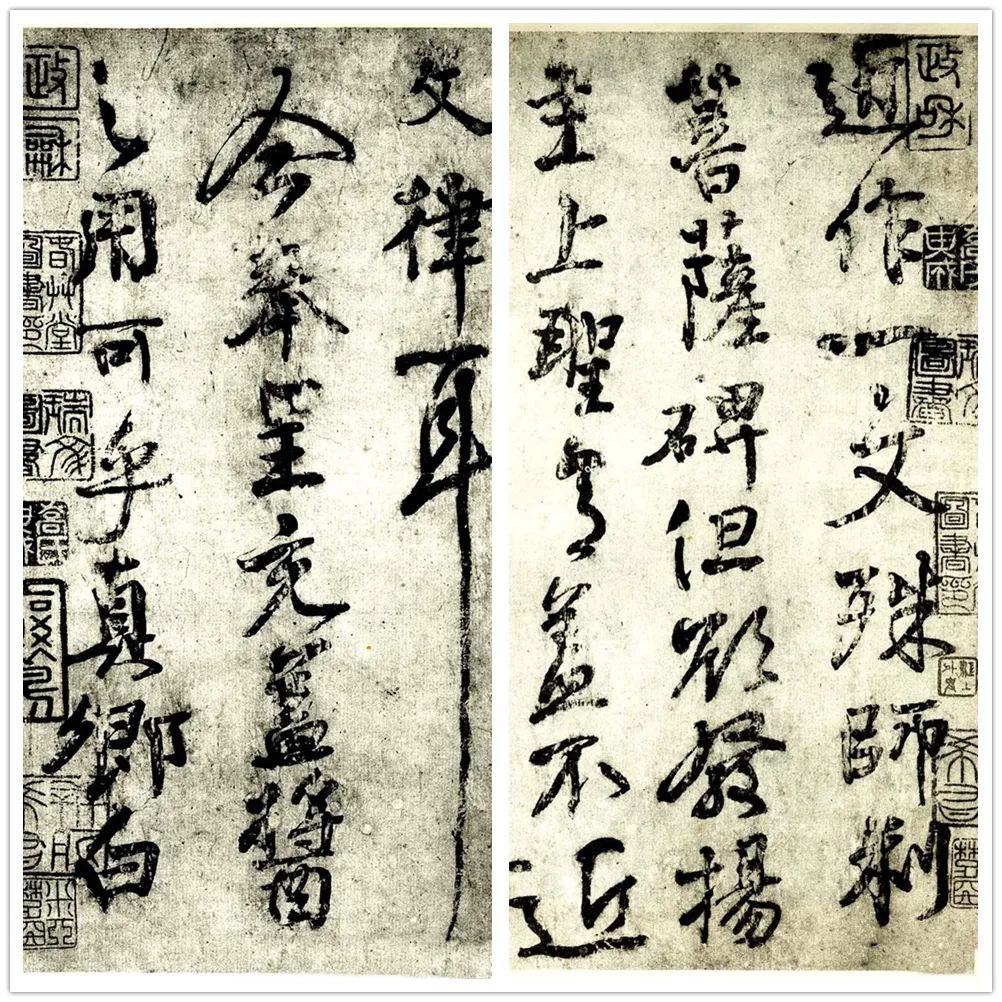 作一文殊師利
菩薩碑但欲發揚
主上聖意蓋不近
文律耳
今奉呈充蓋醬
之用可乎真卿白